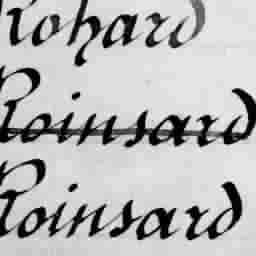 Rohard
Roinsard
Roinsard